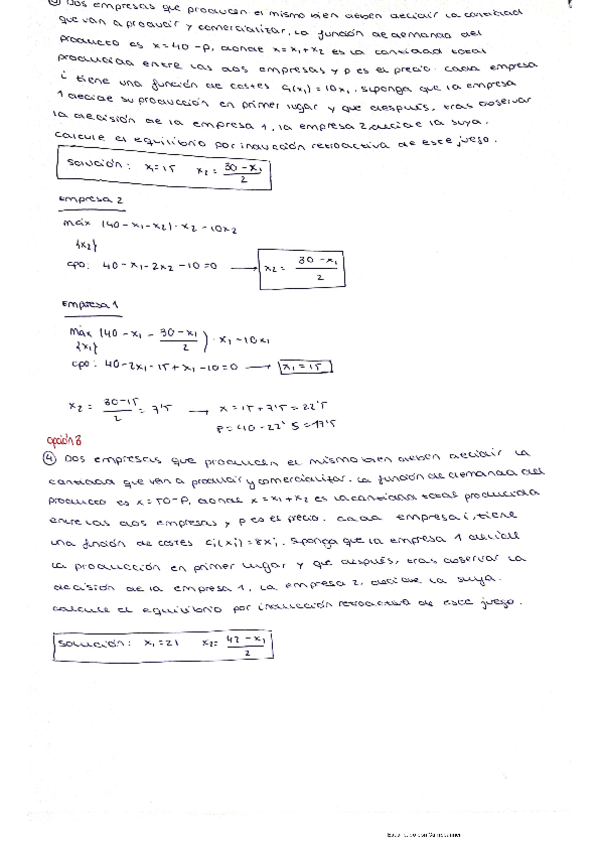 ③ Dos empresas que producen el mismo bien deben decidir la cantidad
que van a producir y comercializar. La función de demanda del
producto es x=40-p, donde x=x₁+x₂ es la cantidad total
producida entre las dos empresas y p es el precio. Cada empresa
i tiene una función de costes Cᵢ(xᵢ)=10xᵢ. Suponga que la empresa
1 decide su producción en primer lugar y que después, tras observar
la decisión de la empresa 1, la empresa 2 decide la suya.
Calcule el equilibrio por inducción retroactiva de este juego.
Solución: x₁=15 x₂= (30-x₁)/2
Empresa 2
máx (40-x₁-x₂)·x₂-10x₂
{x₂}
cpo: 40-x₁-2x₂-10=0 → x₂= (30-x₁)/2
Empresa 1
máx (40-x₁- (30-x₁)/2)·x₁-10x₁
{x₁}
cpo: 40-2x₁-15+x₁-10=0 → x₁=15
x₂= (30-15)/2 = 7'5 → x=15+7'5=22'5
P=40-22'5=17'5
opción B
④ Dos empresas que producen el mismo bien deben decidir la
cantidad que van a producir y comercializar. La función de demanda del
producto es x=50-p, donde x=x₁+x₂ es la cantidad total producida
entre las dos empresas y p es el precio. Cada empresa i, tiene
una función de costes Cᵢ(xᵢ)=8xᵢ. Suponga que la empresa 1 decide
la producción en primer lugar y que después, tras observar la
decisión de la empresa 1, la empresa 2, decide la suya.
Calcule el equilibrio por inducción retroactiva de este juego.
Solución: x₁=21 x₂= (42-x₁)/2